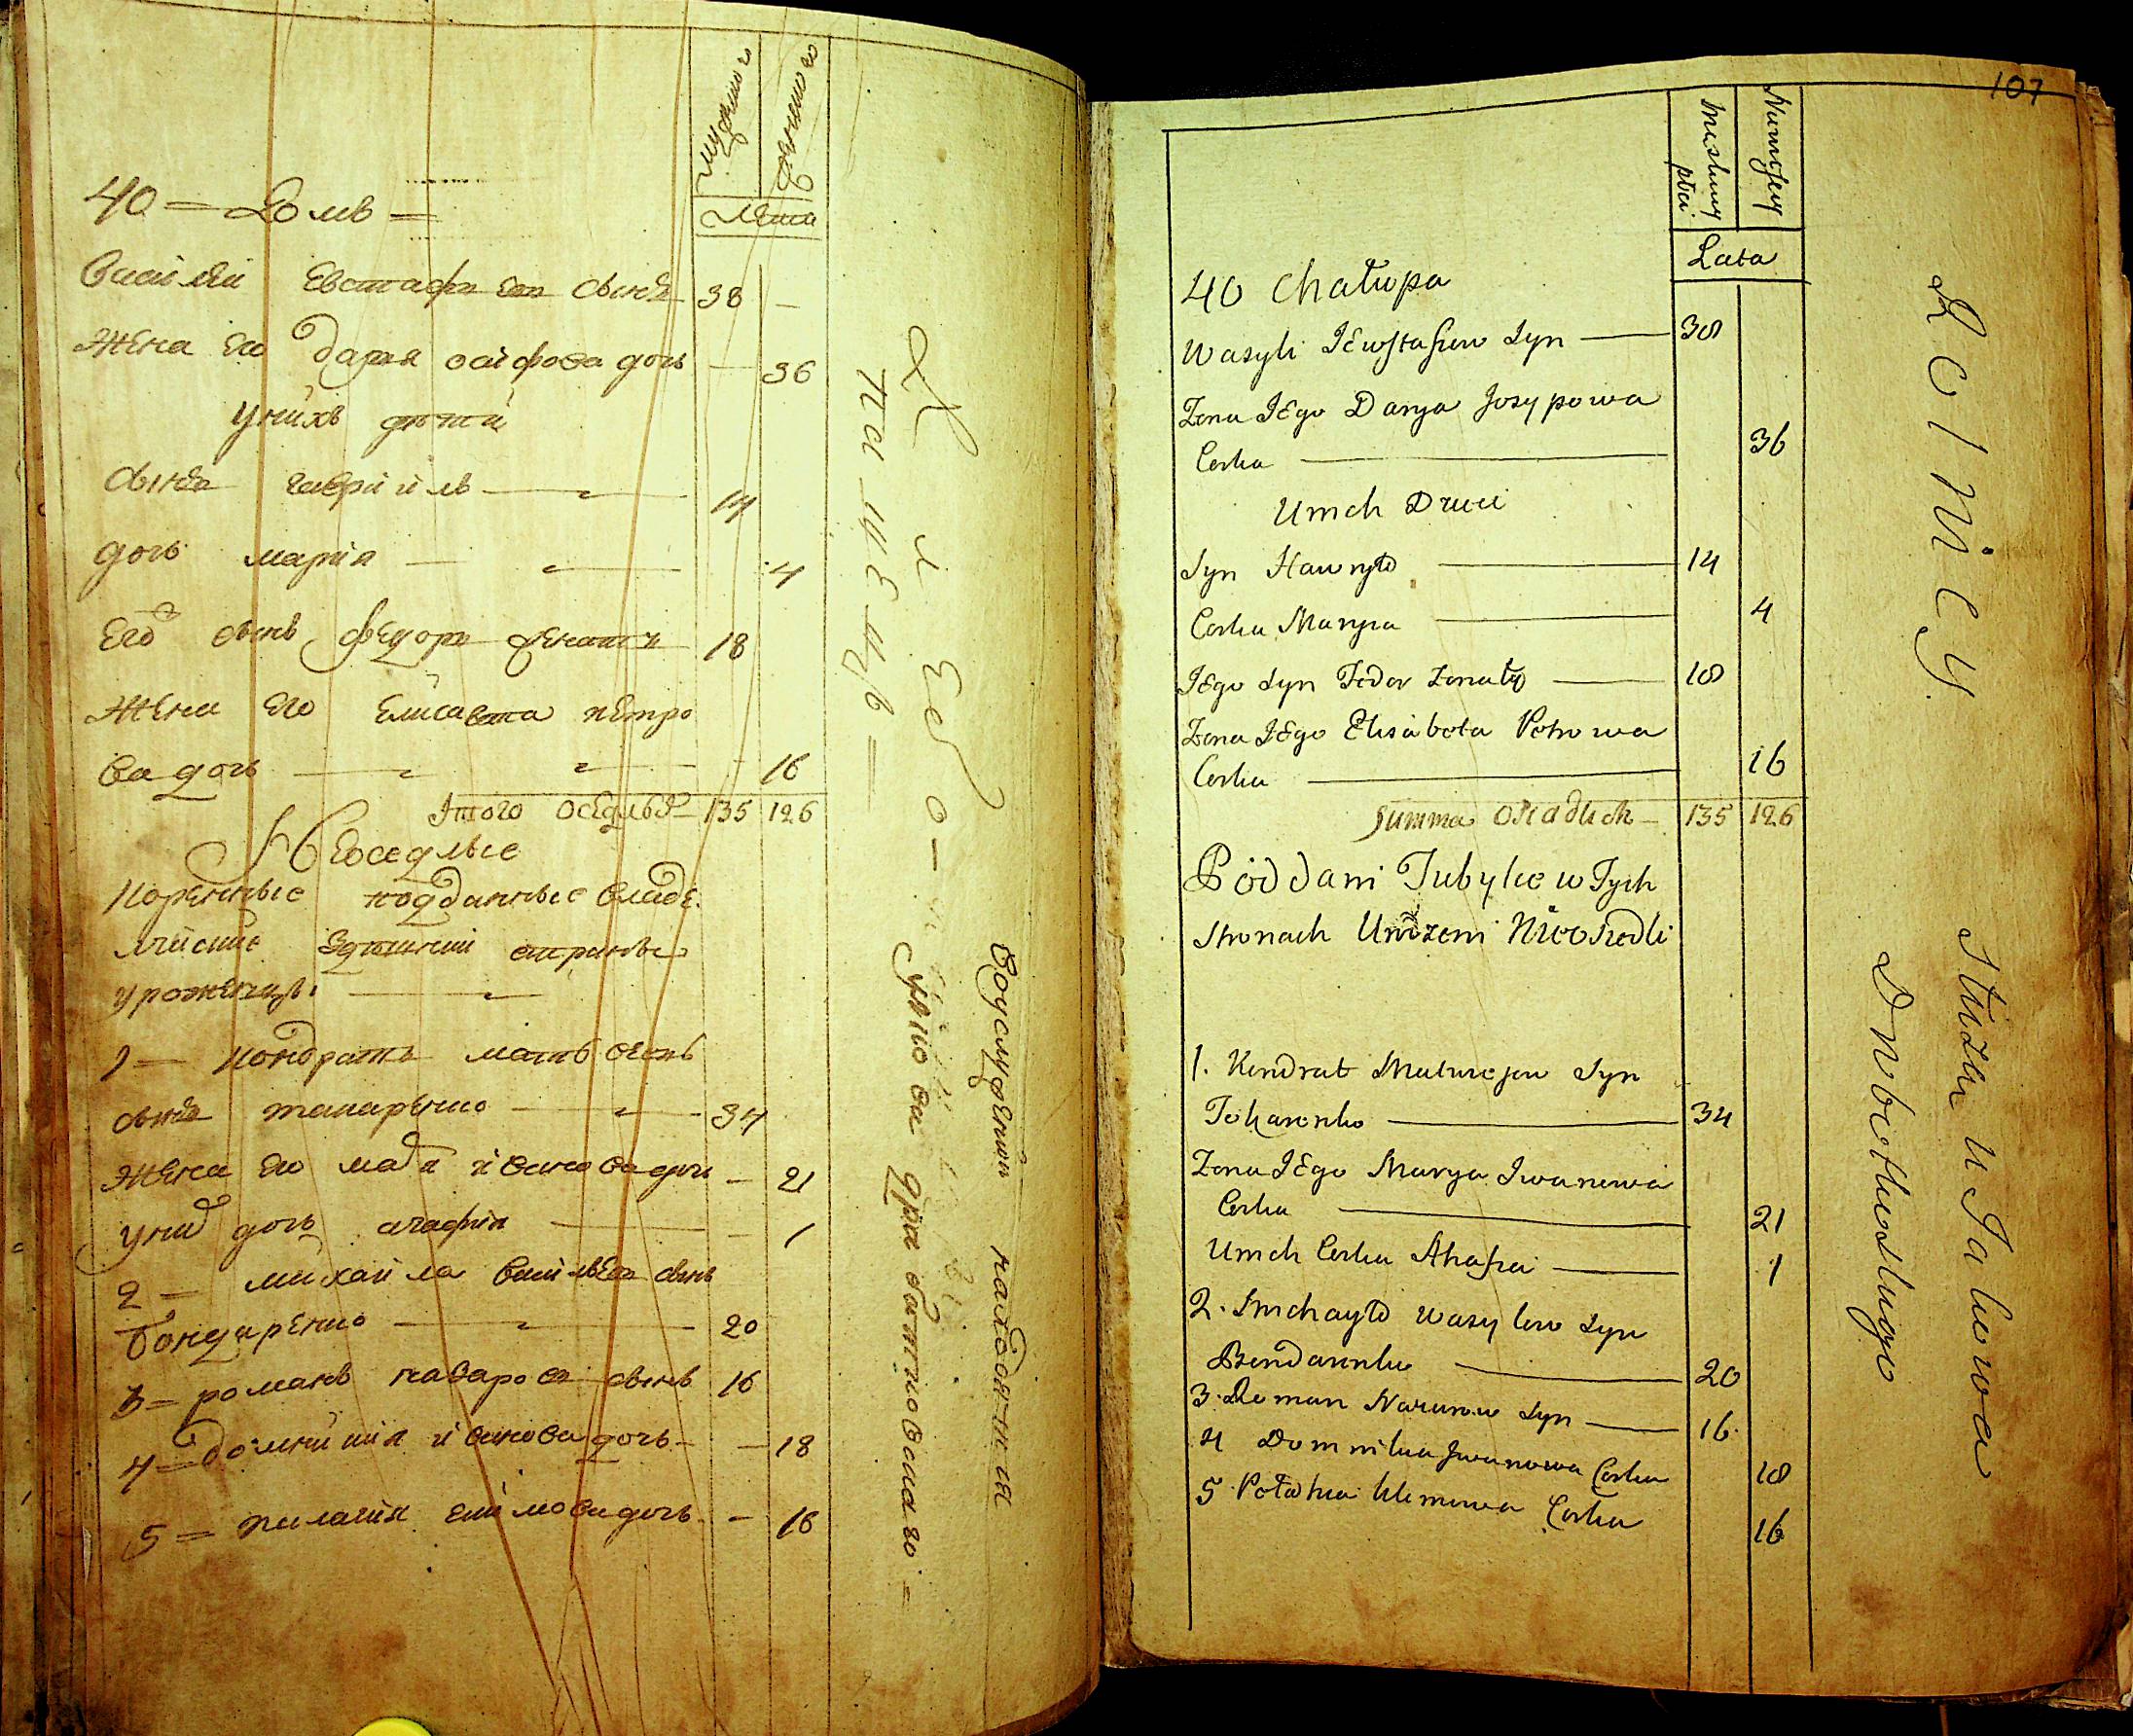 Мужеска
Женска
Лета
40 = Домъ =
Василій Евстафиевъ сынъ 38 —
Жена его Дария осифова дочь — 36
у нихъ дѣти
сынъ гавріилъ — 14
дочь марія — 4
Его сынъ федоръ женатъ 18
Жена его Елисавета петро
ва дочь — 16
Итого оседлыхъ 135 126
Неоседлые
Коренные подданные владе.
лческие здешней стороны
уроженцы —
1 — Кондратъ матвѣевъ
сынъ токаренко — 34
Жена его мария иванова дочь — 21
у них дочь агафия — 1
2 — михайла васильевъ сынъ
бондаренко — 20
3 = романъ назаровъ сынъ 16
4 = домникия иванова дочь — — 18
5 = пилагия климова дочь — — 16
пашенъ =
во услужении находятся
107
Meskiey płci
Niewiesciey
Lata
40 Chałupa
Wasyli Jewstafiew Syn — 38
Zona Jego Darya Josypowa
Corka — 36
U nich Dzieci
Syn Hawryło — 14
Corka Marya — 4
Jego Syn Fedor Zonaty — 18
Zona Jego Elisabeta Petrowa
Corka — 16
Summa Osiadlich — 135 126
Poddani Tubylce w Tych
Stronach Urodzeni Nieosiedli
1. Kondrat Matwejew Syn
Tokarenko — 34
Zona Jego Marya Iwanowa
Corka — 21
U nich Corka Ahafia — 1
2. Michayło Wasylew Syn
Bondarenko — 20
3. Roman Nazarow Syn — 16
4 Domnika Iwanowa Corka 18
5. Pełahia Klimowa Corka 16
Rolniey
Służy u Jakowa